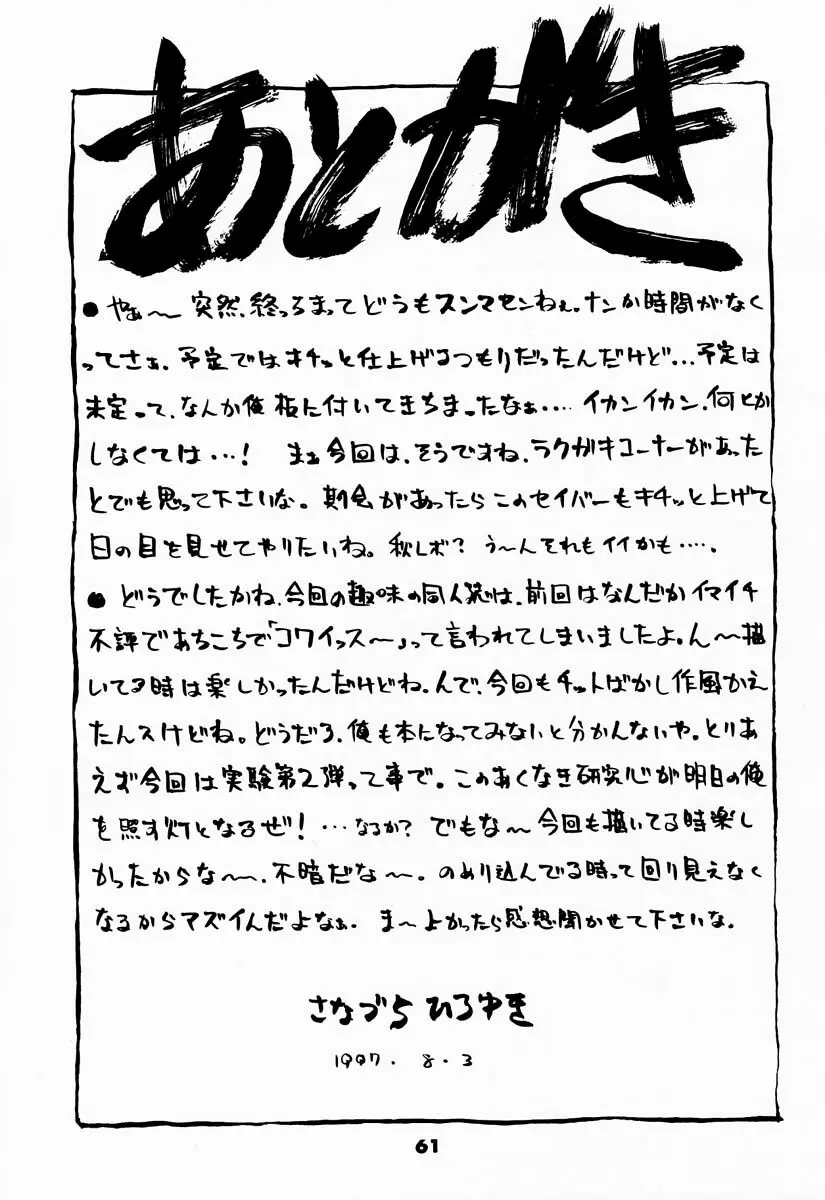 あとがき
● やぁ〜 突然、終っちまってどうもスンマセンねぇ。ナンか時間がなく
ってさぁ、予定ではキチッと仕上げるつもりだったんだけど…予定は
未定って、なんか俺 板に付いてきちまったなぁ‥‥ イカンイカン、何とか
しなくては…! まぁ今回は、そうですね、ラクガキコーナーがあった
とでも思って下さいな。期会があったらこのセイバーもキチッと上げて
日の目を見せてやりたいね。秋レボ? う〜んそれもイイかも‥‥.
● どうでしたかね、今回の趣味の同人誌は、前回はなんだかイマイチ
不評であちこちで「コワイっス〜」って言われてしまいましたよ。ん〜描
いてる時は楽しかったんだけどね。んで、今回もチットばかし作風かえ
たんスけどね。どうだろ、俺も本になってみないと分かんないや。とりあ
えず今回は実験第2弾って事で。このあくなき研究心が明日の俺
を照す灯となるぜ! …なるか? でもな〜今回も描いてる時楽し
かったからな〜、不暗だな〜。のめり込んでる時って回り見えなく
なるからマズイんだよなぁ. ま〜よかったら感想聞かせて下さいな。
さなづら ひろゆき
1997. 8.3
61